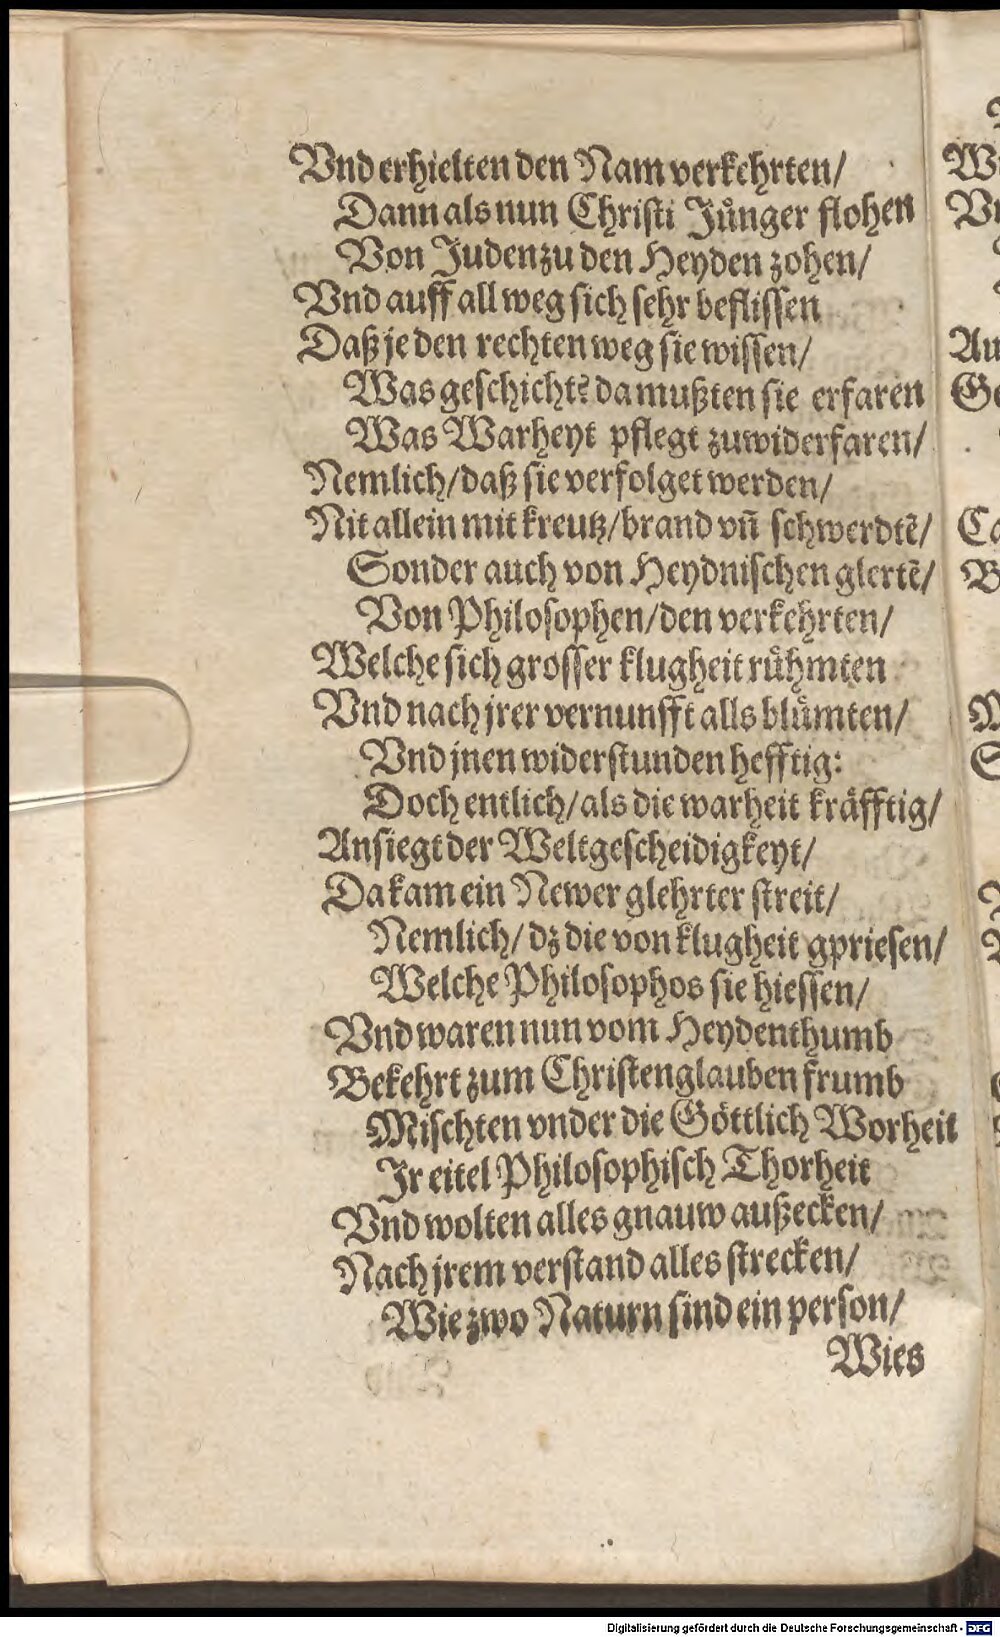 Vnd erhielten den Nam verkehrten/
Dann als nun Christi Jůnger flohen
Von Juden zu den Heyden zohen/
Vnd auff all weg sich sehr beflissen
Daß je den rechten weg sie wissen/
Was geschicht? da mußten sie erfaren
Was Warheyt pflegt zuwiderfaren/
Nemlich/ daß sie verfolget werden/
Nit allein mit kreutz/ brand vn̄ schwerdtē/
Sonder auch von Heydnischen glertē/
Von Philosophen/ den verkehrten/
Welche sich grosser klugheit růhmten
Vnd nach jrer vernunfft alls blůmten/
Vnd jnen widerstunden hefftig:
Doch entlich/ als die warheit kräfftig/
Ansiegt der Welt gescheidigkeyt/
Da kam ein Newer glehrter streit/
Nemlich/ dz die von klugheit gpriesen/
Welche Philosophos sie hiessen/
Vnd waren nun vom Heydenthumb
Bekehrt zum Christenglauben frumb
Mischten vnder die Göttlich Worheit
Jr eitel Philosophisch Thorheit
Vnd wolten alles gnauw außecken/
Nach jrem verstand alles strecken/
Wie zwo Naturn sind ein person/
Wies
Digitalisierung gefördert durch die Deutsche Forschungsgemeinschaft - DFG